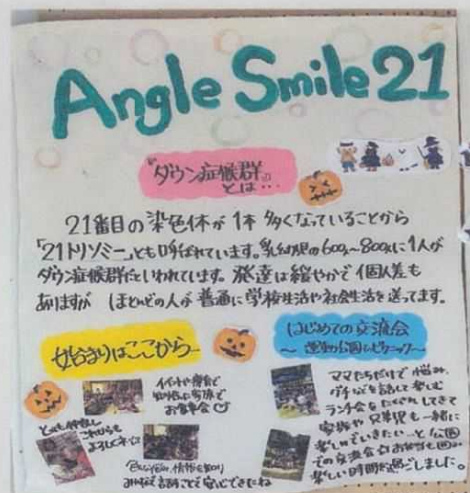 Angle Smile 21
『ダウン症候群』
とは…
21番目の染色体が1本多くなっていることから
「21トリソミー」とも呼ばれています。乳幼児の600人~800人に1人が
ダウン症候群だといわれています。発達は緩やかで個人差も
ありますが ほとんどの人が普通に学校生活や社会生活を送ってます。
始まりはここから
イベントや療育で
知り合った家族で
お食事会
とっても仲良し
これからも
よろしくネ
情報を知り
みんなで話すことで安心できたね
はじめての交流会
~運動公園でピクニック~
ママたちだけで悩み、
グチなどを話して楽しむ
ランチ会をたくさんしてきて
家族や兄弟児も一緒に
楽しんでいきたい…と公園
での交流会☆お弁当を囲み
楽しい時間を過ごしました。